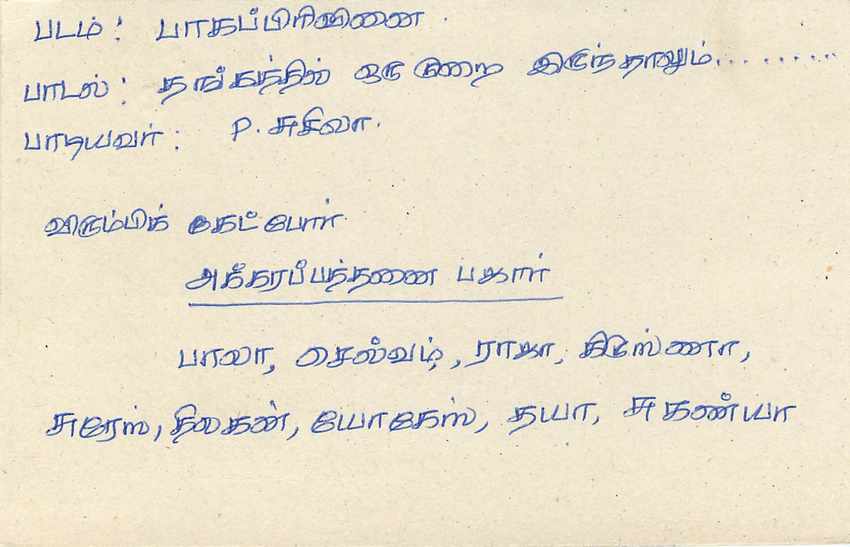 படம் : பாகப்பிரிவினை.
பாடல் : தங்கத்தில் ஒரு குறை இருந்தாலும்..........
பாடியவர் : P. சுசிலா.
விரும்பிக் கேட்போர்
அக்கரப்பத்தனை பகார்
பாலா, செல்வம், ராஜா, கிருஸ்ணா,
சுரேஸ், திலகன், யோகேஸ், தயா, சுகண்யா